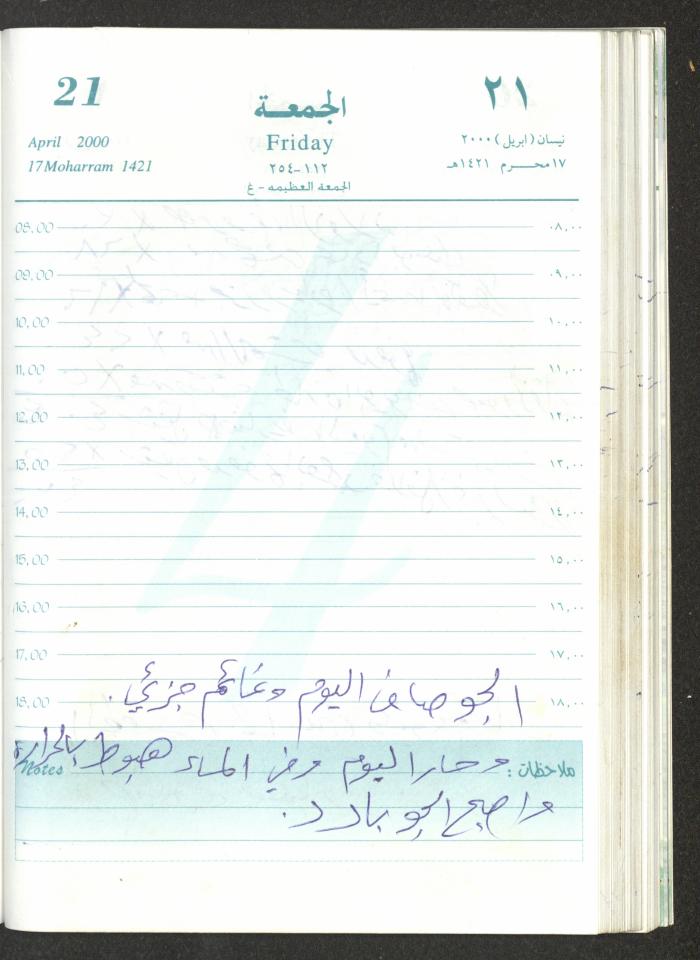 21 الجمعة ٢١
April 2000 Friday نيسان (ابريل) ٢٠٠٠
17 Moharram 1421 ١١٢-٢٥٤ ١٧ محرم ١٤٢١هـ
الجمعه العظيمه - غ
08.00 ٠٨,٠٠
09.00 ٠٩,٠٠
10.00 ١٠,٠٠
11.00 ١١,٠٠
12.00 ١٢,٠٠
13.00 ١٣,٠٠
14.00 ١٤,٠٠
15.00 ١٥,٠٠
16.00 ١٦,٠٠
17.00 ١٧,٠٠
الجو صاف اليوم وغائم جزئي.
18.00 ١٨,٠٠
ملاحظات: وحار اليوم وفي المساء هبوط بالحرارة Notes
واصبح الجو بارد.
4